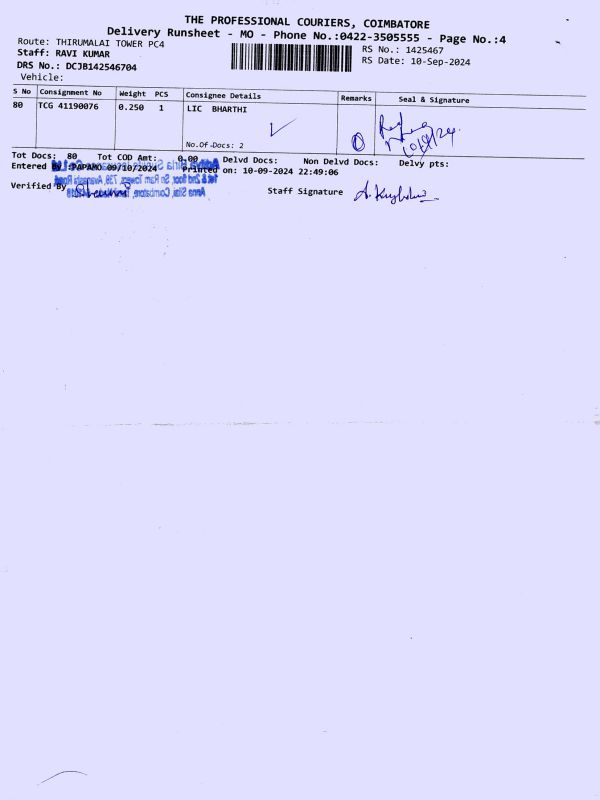 THE PROFESSIONAL COURIERS, COIMBATORE
Delivery Runsheet - MO - Phone No.:0422-3505555 - Page No.:4
Route: THIRUMALAI TOWER PC4
RS No.: 1425467
Staff: RAVI KUMAR
RS Date: 10-Sep-2024
DRS No.: DCJB142546704
Vehicle:
S No Consignment No Weight PCS Consignee Details Remarks Seal & Signature
80 TCG 41190076 0.250 1 LIC BHARTHI
No.Of.Docs: 2
Tot Docs: 80 Tot COD Amt: 0.00 Delvd Docs: Non Delvd Docs: Delvy pts:
Entered By :PAPAMO 09/10/2024 Printed on: 10-09-2024 22:49:06
Verified By
Staff Signature